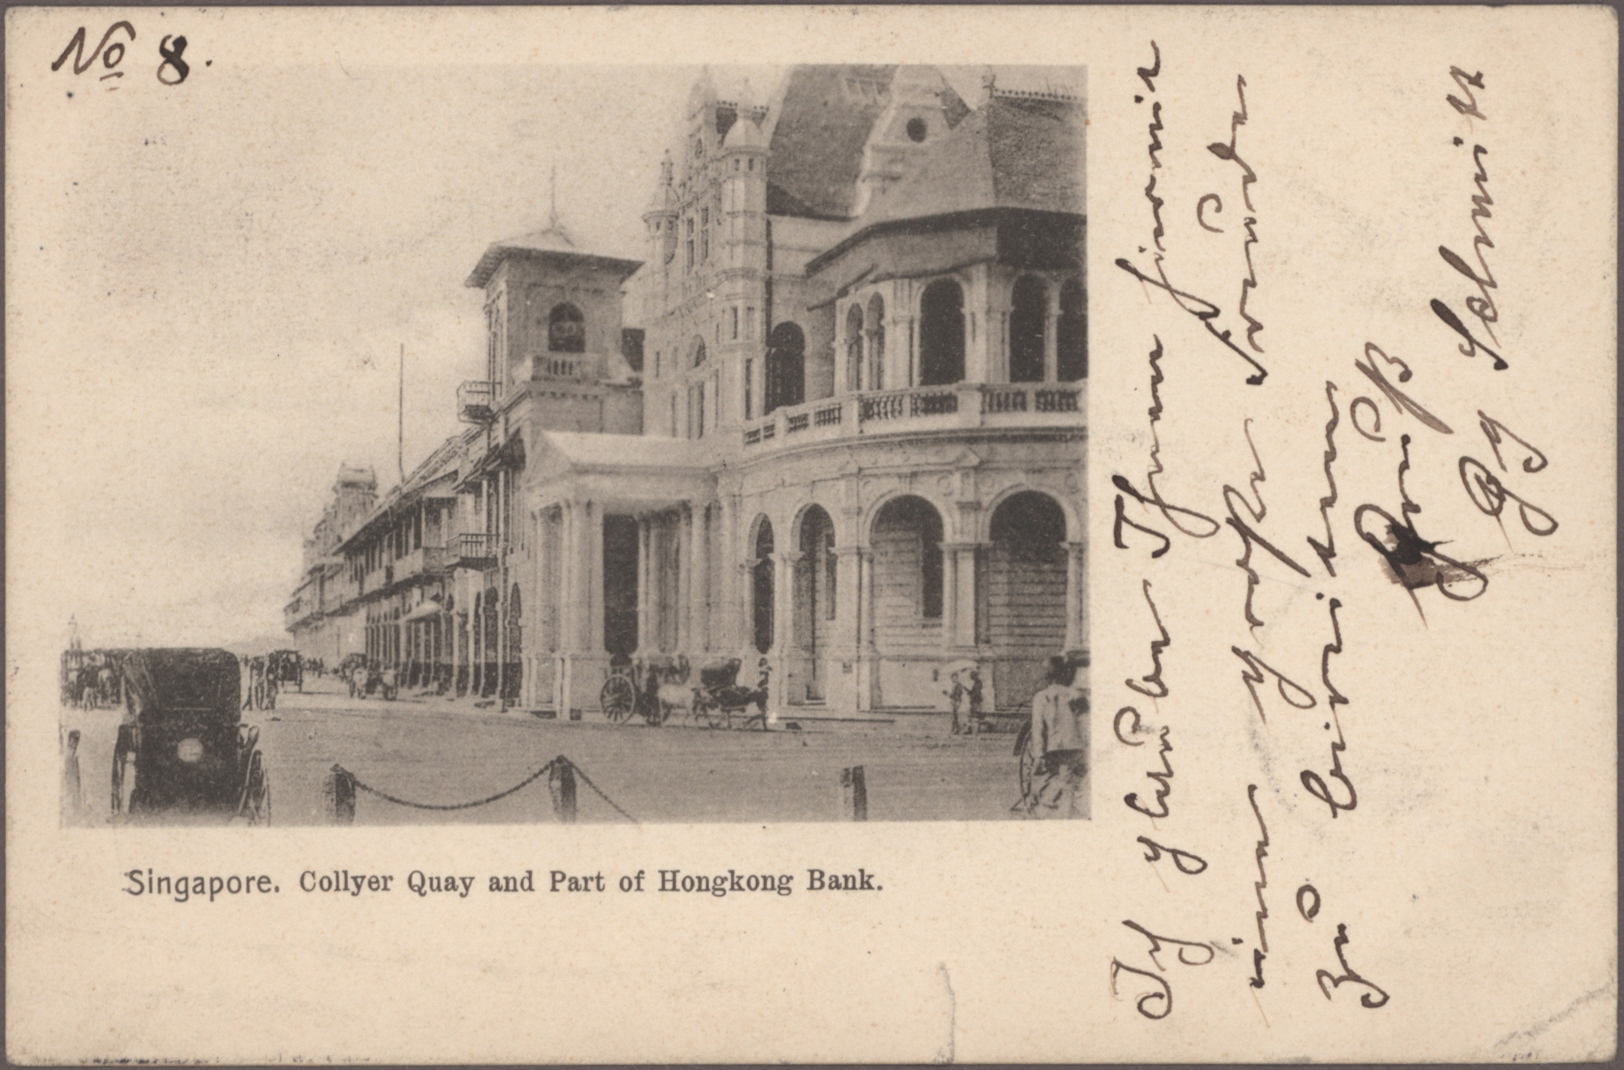 No 8.
Singapore. Collyer Quay and Part of Hongkong Bank.
Ich glaube Ihnen hiermit
eine große Freude
zu bereiten
Gruß
Gg Schmitt